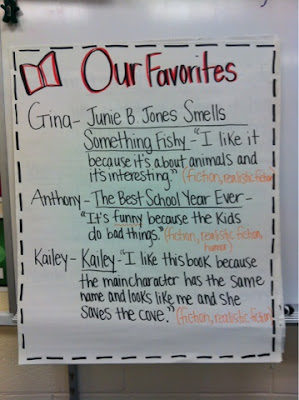 Our Favorites
Gina- Junie B. Jones Smells
Something Fishy - "I like it
because it's about animals and
it's interesting." (fiction, realistic fiction)
Anthony - The Best School Year Ever -
"It's funny because the kids
do bad things." (fiction, realistic fiction,
humor)
Kailey - Kailey "I like this book because
the main character has the same
name and looks like me and she
saves the cove." (fiction, realistic fiction)